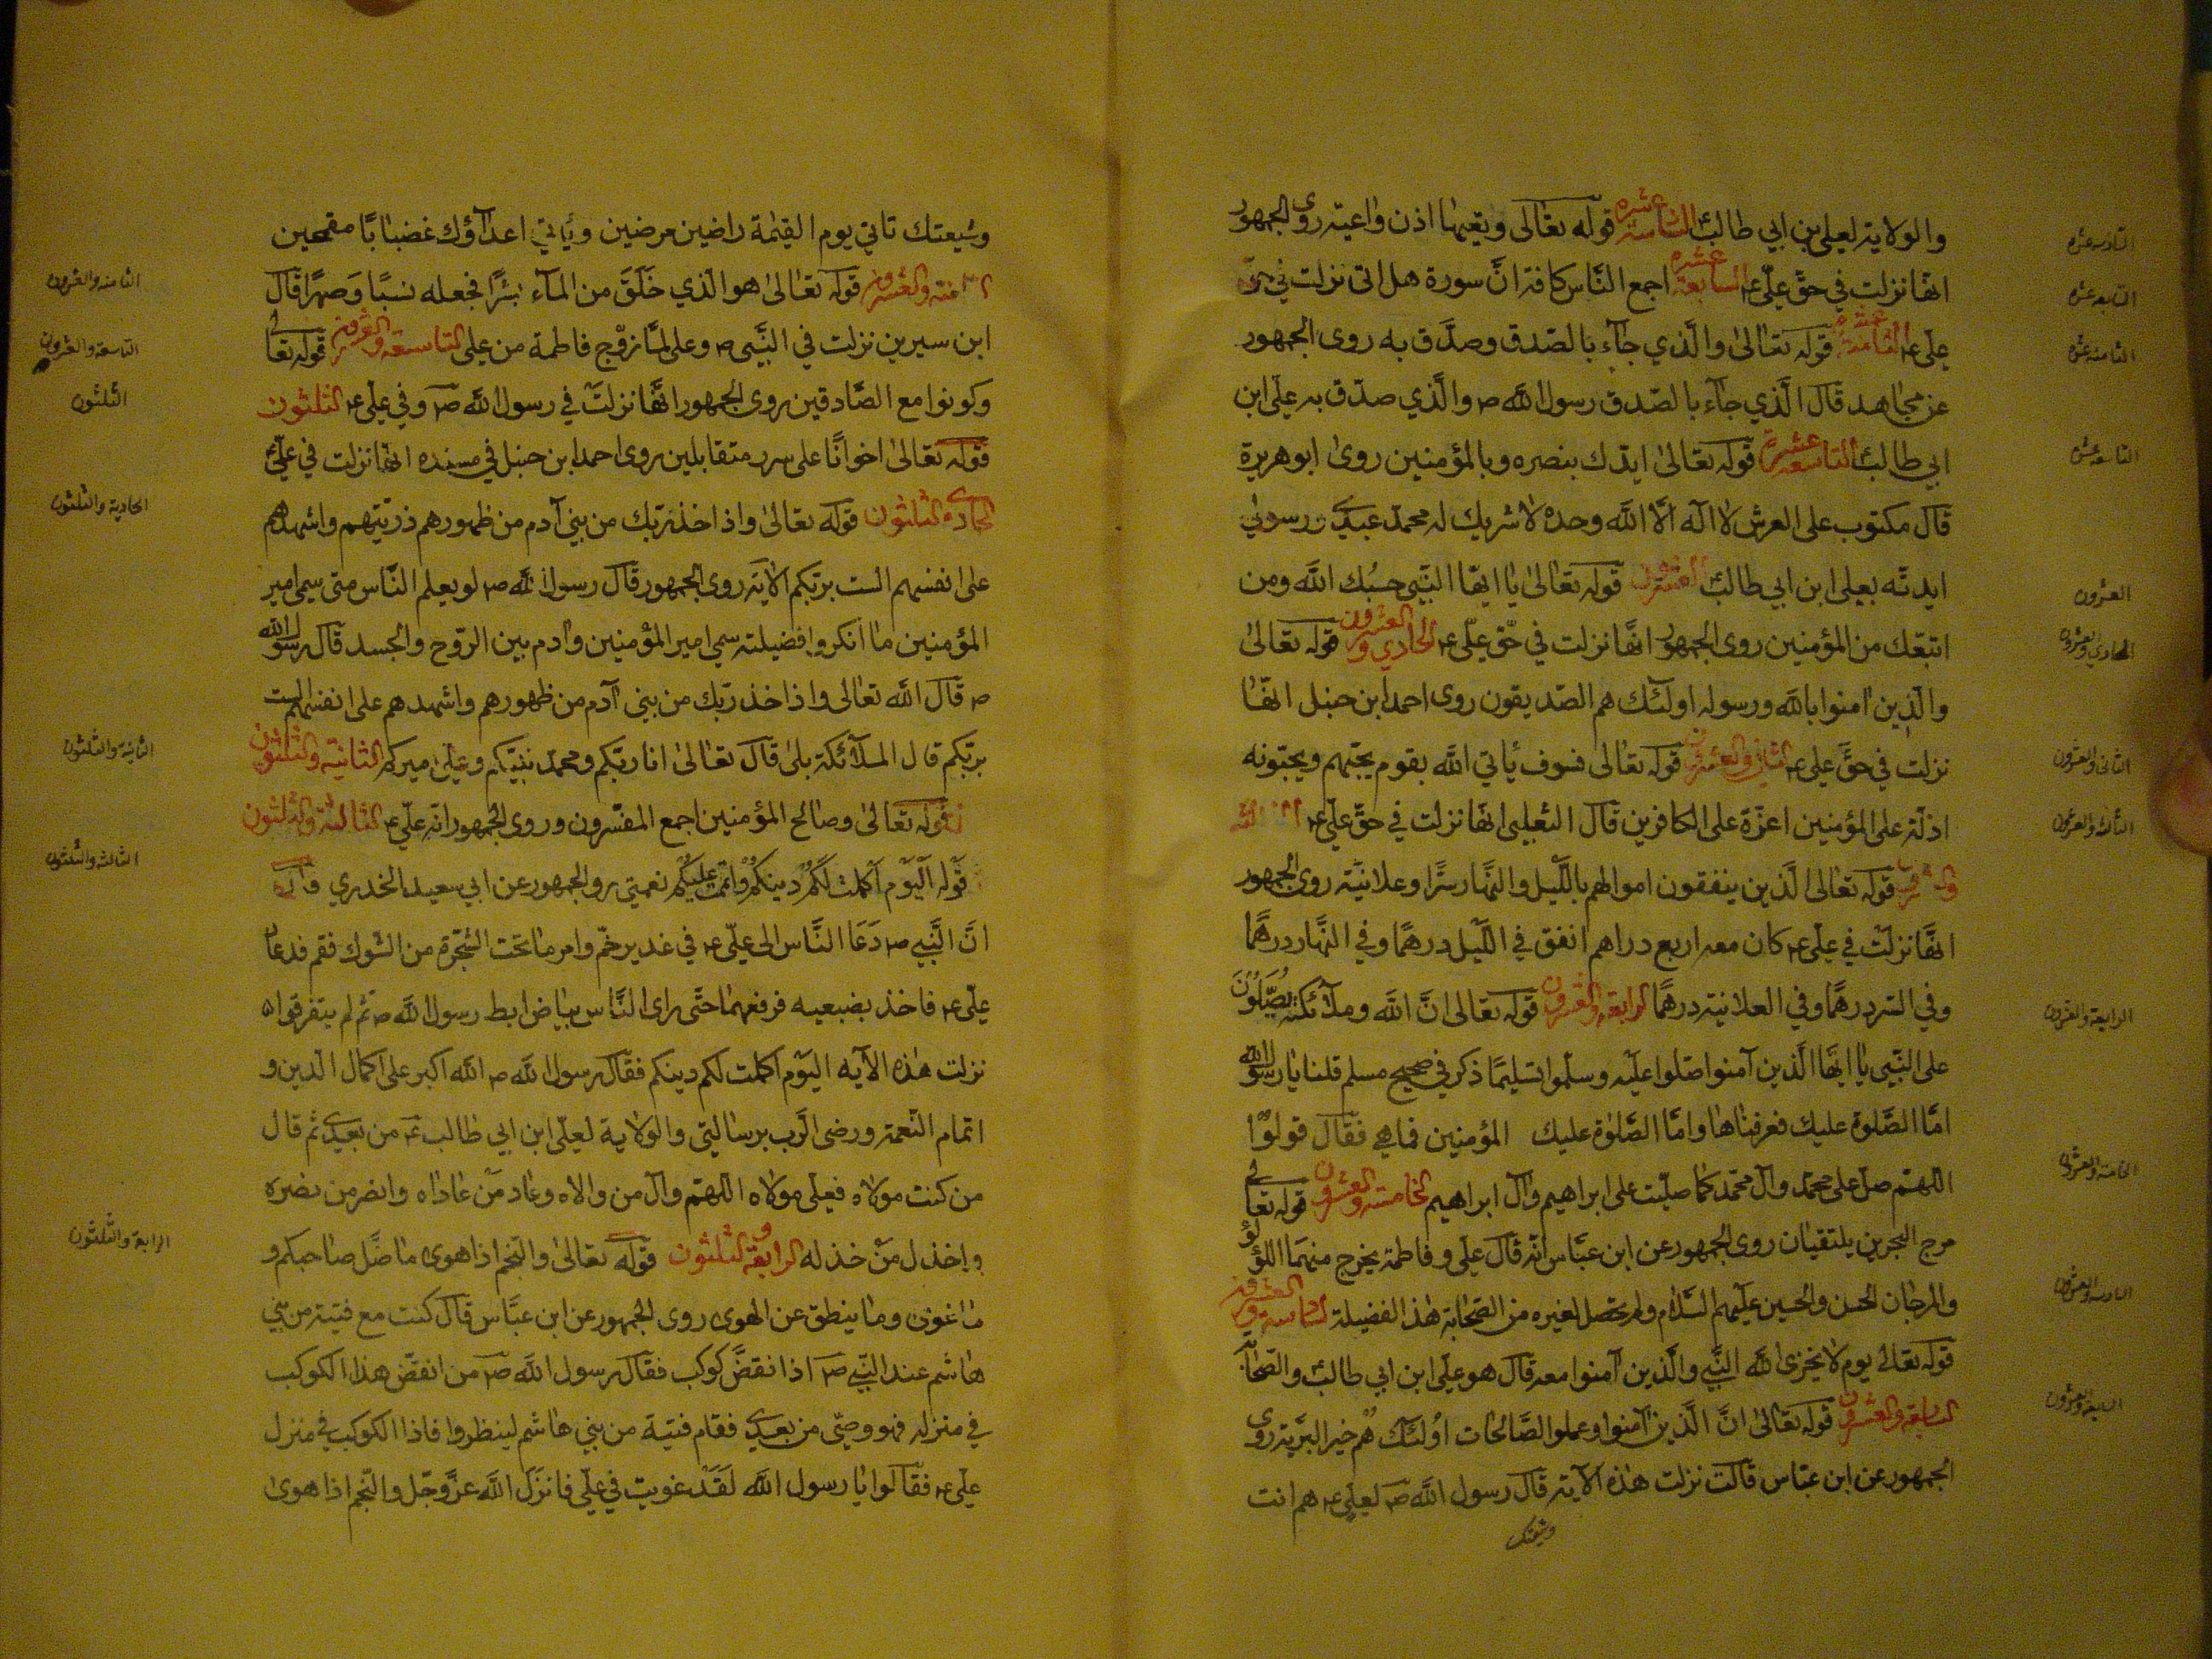 والولاية لعلي بن ابي طالب السادسة عشره قوله تعالى وتعيها اذن واعية روى الجمهور
انها نزلت في حق علي ع السابعة عشره اجمع الناس كافة ان سورة هل اتى نزلت في حق
علي ع الثامنة عشره قوله تعالى والذي جاء بالصدق وصدق به روى الجمهور
عن مجاهد قال الذي جاء بالصدق رسول الله ص والذي صدق به علي ابن
ابي طالب التاسعة عشرة قوله تعالى ايدك بنصره وبالمؤمنين روى ابو هريرة
قال مكتوب على العرش لا اله الا الله وحده لا شريك له محمد عبدي ورسولي
ايدته بعلي ابن ابي طالب العشرون قوله تعالى يا ايها النبي حسبك الله ومن
اتبعك من المؤمنين روى الجمهور انها نزلت في حق علي ع الحادي والعشرون قوله تعالى
والذين امنوا بالله ورسوله اولئك هم الصديقون روى احمد ابن حنبل انها
نزلت في حق علي ع الثاني والعشرون قوله تعالى فسوف يأتي الله بقوم يحبهم ويحبونه
اذلة على المؤمنين اعزة على الكافرين قال الثعلبي انها نزلت في حق علي ع
والعشرون قوله تعالى الذين ينفقون اموالهم بالليل والنهار سرا وعلانية روى الجمهور
انها نزلت في علي ع كان معه اربع دراهم انفق في الليل درهما وفي النهار درهما
وفي السر درهما وفي العلانية درهما الرابعة والعشرون قوله تعالى ان الله وملائكته يصلون
على النبي يا ايها الذين آمنوا صلوا عليه وسلموا تسليما ذكر في صحيح مسلم قلنا يا رسول الله
اما الصلوة عليك فعرفناها واما الصلوة عليك المؤمنين فما هي فقال قولوا
اللهم صل على محمد وال محمد كما صليت على ابراهيم وال ابراهيم الخامسة والعشرون قوله تعالى
مرج البحرين يلتقيان روى الجمهور عن ابن عباس انه قال علي وفاطمة يخرج منهما اللؤلؤ
والمرجان الحسن والحسين عليهم السلام ولم يحصل لغيره من الصحابة هذا الفضيلة السادسة والعشرون
قوله تعالى يوم لا يخزى الله النبي والذين آمنوا معه قال هو علي ابن ابي طالب والصحابة
السابعة والعشرون قوله تعالى ان الذين آمنوا وعملوا الصالحات اولئك هم خير البرية روى
الجمهور عن ابن عباس قالت نزلت هذه الآية قال رسول الله ص لعلي ع هم انت
وشيعتك
السادسة عشره
السابعة عشره
الثامنة عشره
التاسعة عشر
العشرون
الحادي والعشرون
الثاني والعشرون
الثالث والعشرون
الرابعة والعشرون
الخامسة والعشرون
السادسة والعشرون
السابعة والعشرون
وشيعتك تاتي يوم القيمة راضين مرضين ويأتي اعداؤك غضبا بًا مقمحين
الثامنة والعشرون قوله تعالى هو الذي خلق من الماء بشرا فجعله نسبا وصهرا قال
ابن سيرين نزلت في النبي ص وعلي لما زوج فاطمة من علي التاسعة والعشرون قوله تعالى
وكونوا مع الصادقين روى الجمهور انها نزلت في رسول الله ص وفي علي ع الثلثون
قوله تعالى اخوانا على سرر متقابلين روى احمد ابن حنبل في مسنده انها نزلت في علي ع
الحادي الثلثون قوله تعالى واذ اخذ ربك من بني آدم من ظهورهم ذريتهم واشهدهم
على انفسهم الست بربكم الآية روى الجمهور قال رسول الله ص لو يعلم الناس متى سمي امير
المؤمنين ما انكروا فضيلته سمي امير المؤمنين وآدم بين الروح والجسد قال رسول الله
ص قال الله تعالى واذ اخذ ربك من بني آدم من ظهورهم واشهدهم على انفسهم الست
بربكم قال الملائكة بلى قال تعالى انا ربكم ومحمد نبيكم وعلي اميركم الثانية والثلثون
قوله تعالى وصالح المؤمنين اجمع المفسرون وروى الجمهور انه علي ع الثالثة والثلثون
قوله اليوم اكملت لكم دينكم واتممت عليكم نعمتي روى الجمهور عن ابي سعيد الخدري قال
ان النبي ص دعا الناس الى علي ع في غدير خم وامر ما تحت الشجرة من الشوك فقم فدعا
علي ع فاخذ بضبعيه فرفعهما حتى راى الناس بياض ابط رسول الله ص ثم لم يتفرقوا
نزلت هذه الآيه اليوم اكملت لكم دينكم فقال رسول الله ص الله اكبر على اكمال الدين و
اتمام النعمة ورضى الرب برسالتي والولاية لعلي ابن ابي طالب ع من بعدي ثم قال
من كنت مولاه فعلي مولاه اللهم وال من والاه وعاد من عاداه وانصر من نصره
واخذل من خذله الرابعة والثلثون قوله تعالى والنجم اذا هوى ما ضل صاحبكم و
ما غوى وما ينطق عن الهوى روى الجمهور عن ابن عباس قال كنت مع فتية من بني
هاشم عند النبي ص اذا نقض كوكب فقال رسول الله ص من انقض هذا الكوكب
في منزله فهو وصيي من بعدي فقام فتية من بني هاشم لينظروا فاذا الكوكب في منزل
علي ع فقالوا يا رسول الله لقد غويت في علي فانزل الله عز وجل والنجم اذا هوى
الثامنه والعشرون
التاسعة والعشرون
الثلثون
الحادية والثلثون
الثانية والثلثون
الثالث والثلثون
الرابعة والثلثون